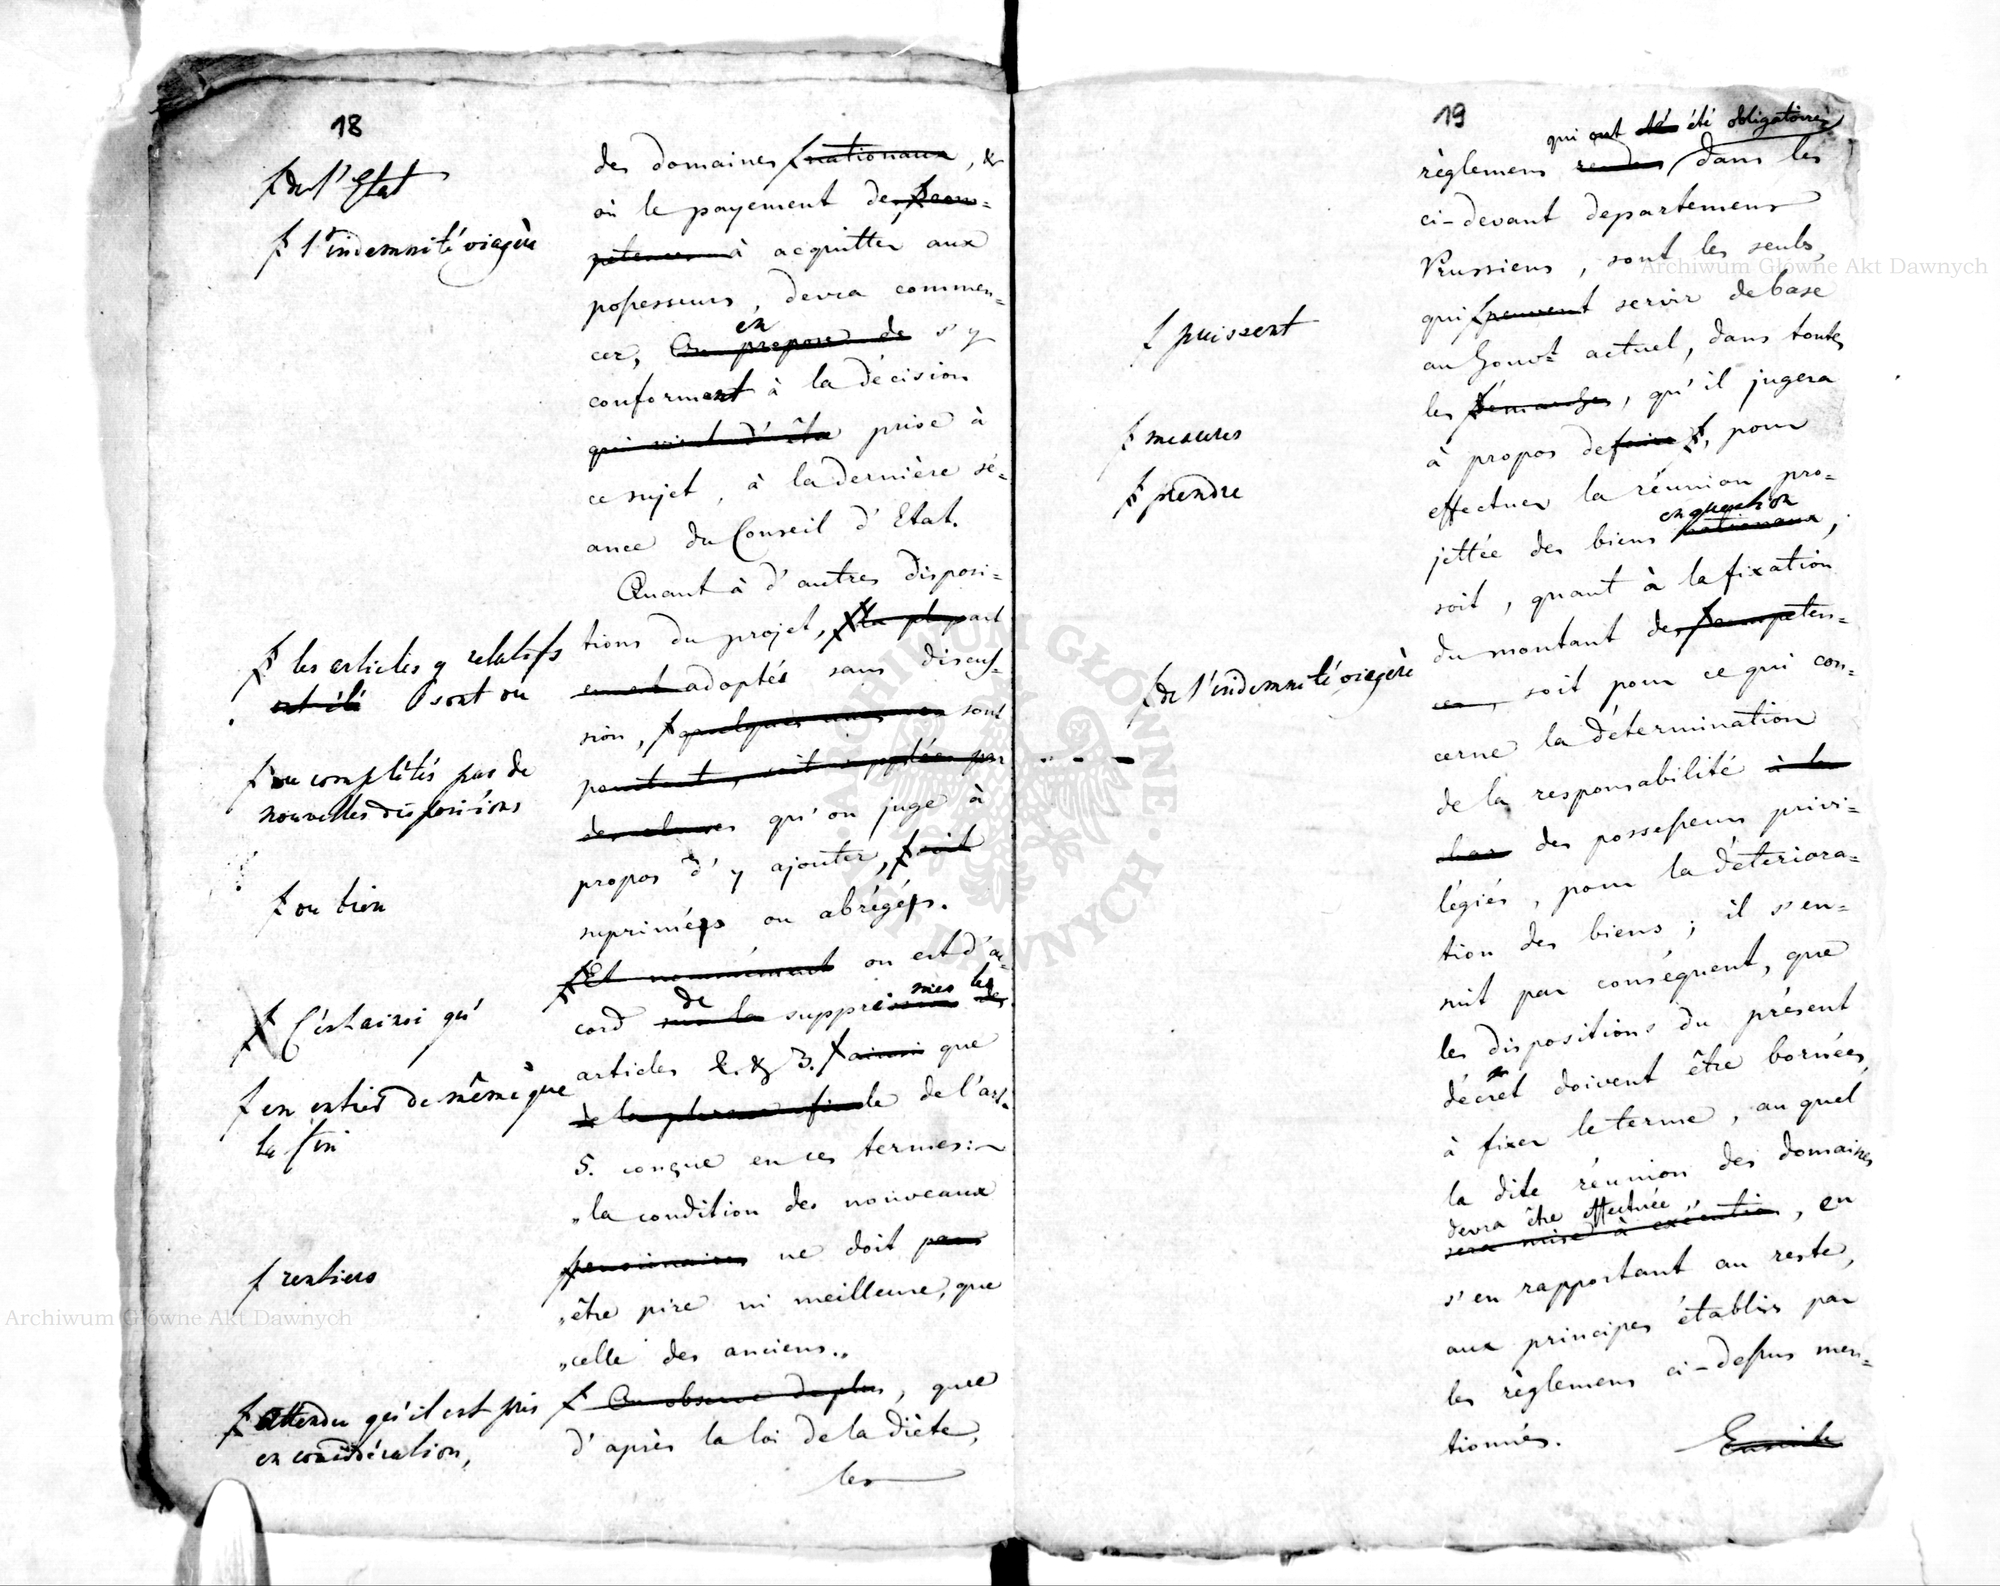 18
ƒ de l'Etat
ƒ l'indemnité viagère
ƒ les articles y relatifs
ont été sont ou
ƒ ou complétés par de
nouvelles dispositions
ƒ ou bien
ƒ C'est ainsi qu'
ƒ en entier de même que
la fin
ƒ rentiers
ƒ Attendu qu'il est pris
en considération,
des domaines ƒ nationaux, &
où le payement de ƒ com=
petences à acquitter aux
possesseurs, devra commen=
cer, On propose de s'y
en
conformant à la décision
qui vient d'être prise à
ce sujet, à la dernière sé=
ance du Conseil d'Etat.
Quant à d'autres disposi=
tions du projet, ƒ la plupart
en ont adoptés sans discus=
sion, ƒ quelques unes en sont
pourtant, soit suppléées par
des clauses qu'on juge à
propos d'y ajouter, ƒ soit
suprimées ou abrégées.
ƒ Et nommément on est d'ac=
cord sur la suppression des
de mer les
articles 2. & 3. ƒ ainsi que
de la phrase finale de l'art.
5. conçue en ces termes:
„la condition des nouveaux
ƒ pensionnaires ne doit pas
„être pire ni meilleure, que
„celle des anciens.„
ƒ On observe de plus, que
d'après la loi de la Diète,
les
19
qui ont été été obligatoires
règlemens rendus dans les
ci-devant departemens
Prussiens, sont les seuls,
qui ƒ peuvent servir de base
au Gouvt actuel, dans toutes
les ƒ demarches, qu'il jugera
à propos de faire ƒ, pour
effectuer la réunion pro=
jettée des biens nationaux,
en question
soit, quant à la fixation
du montant des ƒ competen=
ces, soit pour ce qui con=
cerne la détermination
de la responsabilité à la
char des possesseurs privi=
légiés, pour la déteriora=
tion des biens; il s'en=
suit par conséquent, que
les dispositions du présent
décret doivent être bornées,
à fixer le terme, au quel
la dite réunion des domaines
devra être effectuée,
sera mise à exécution, en
s'en rapportant au reste,
aux principes établis par
les règlemens ci-dessus men=
tionnés.
Ensuite
ƒ puissent
ƒ mesures
ƒ prendre
ƒ de l'indemnité viagère
Archiwum Główne Akt Dawnych
Archiwum Główne Akt Dawnych
ARCHIWUM GŁÓWNE AKT DAWNYCH